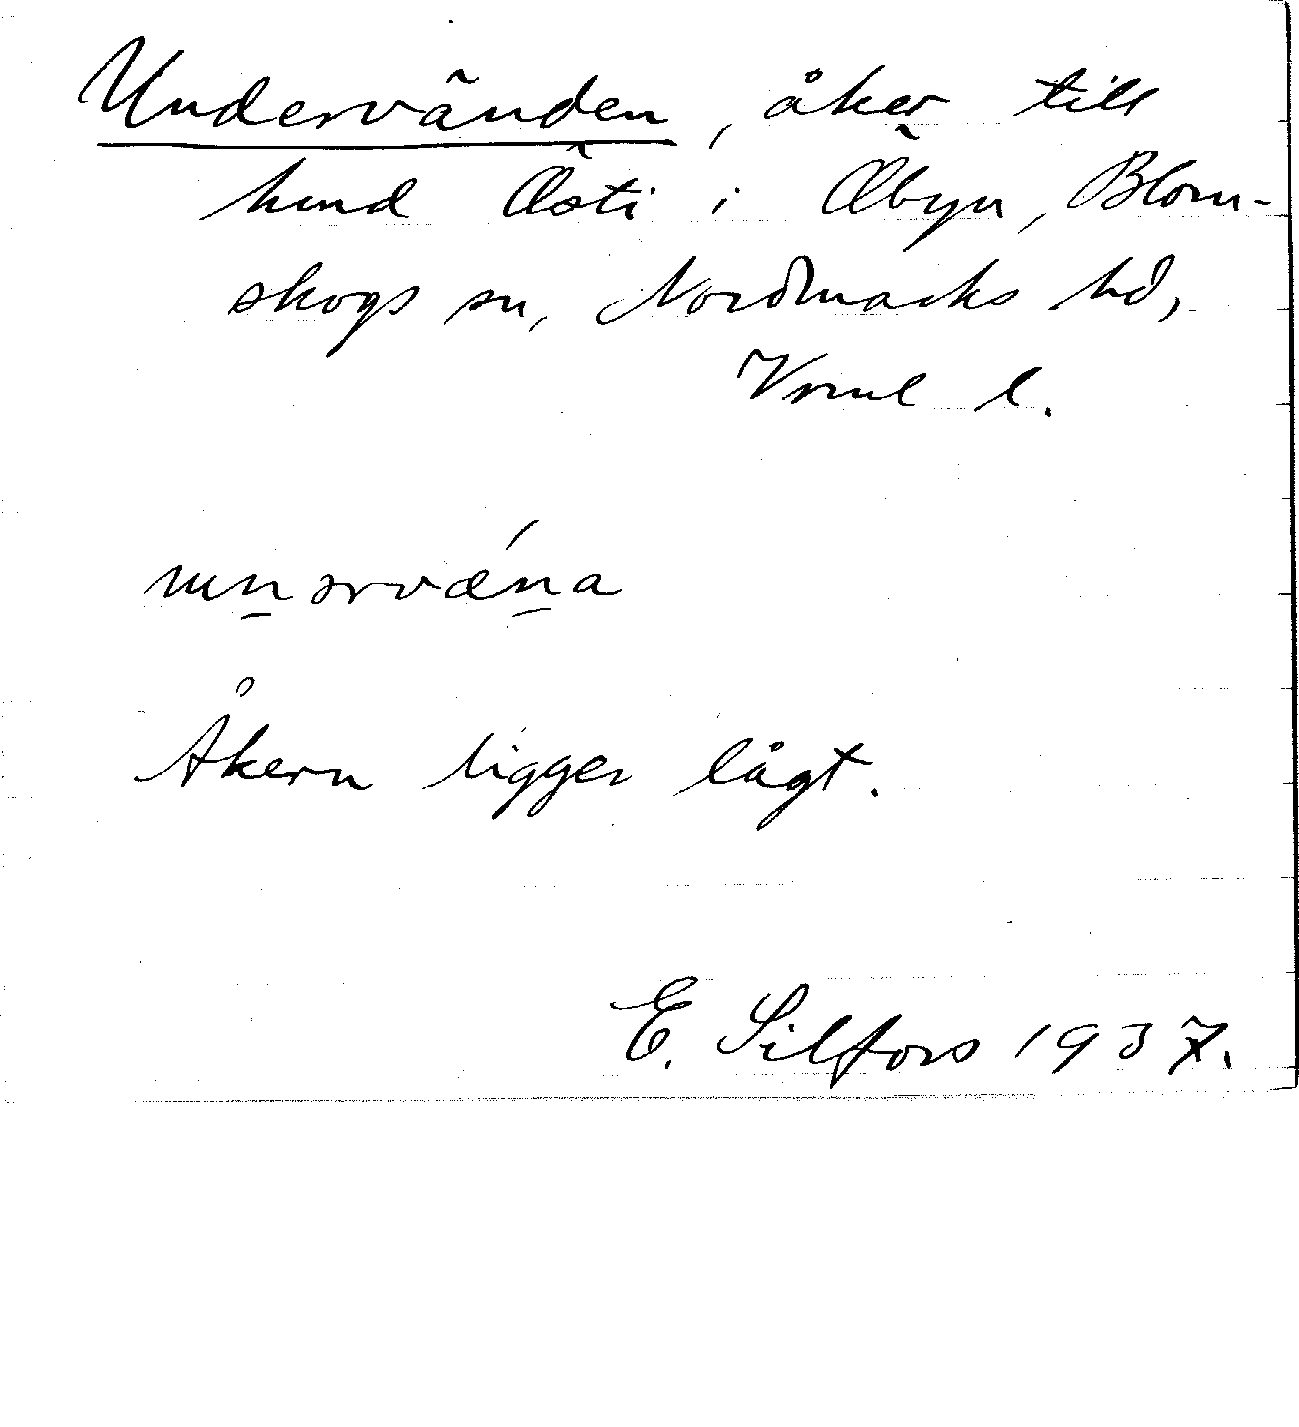 Undervänden, åker till
hmd Östi i Öbyn, Blom-
skogs sn, Nordmarks hd,
Vrml l.
unərvǽna
Åkern ligger lågt.
E. Silfors 1937.